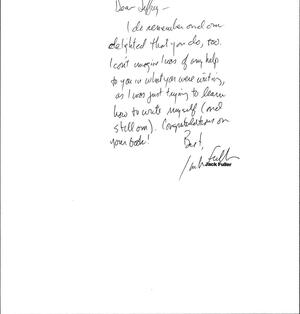 Dear Jeffrey –
I do remember and am
delighted that you do, too.
I can't imagine I was of any help
to you in what you were writing,
as I was just trying to learn
how to write myself (and
still am). Congratulations on
your book!
Best,
Jack Fuller
Jack Fuller